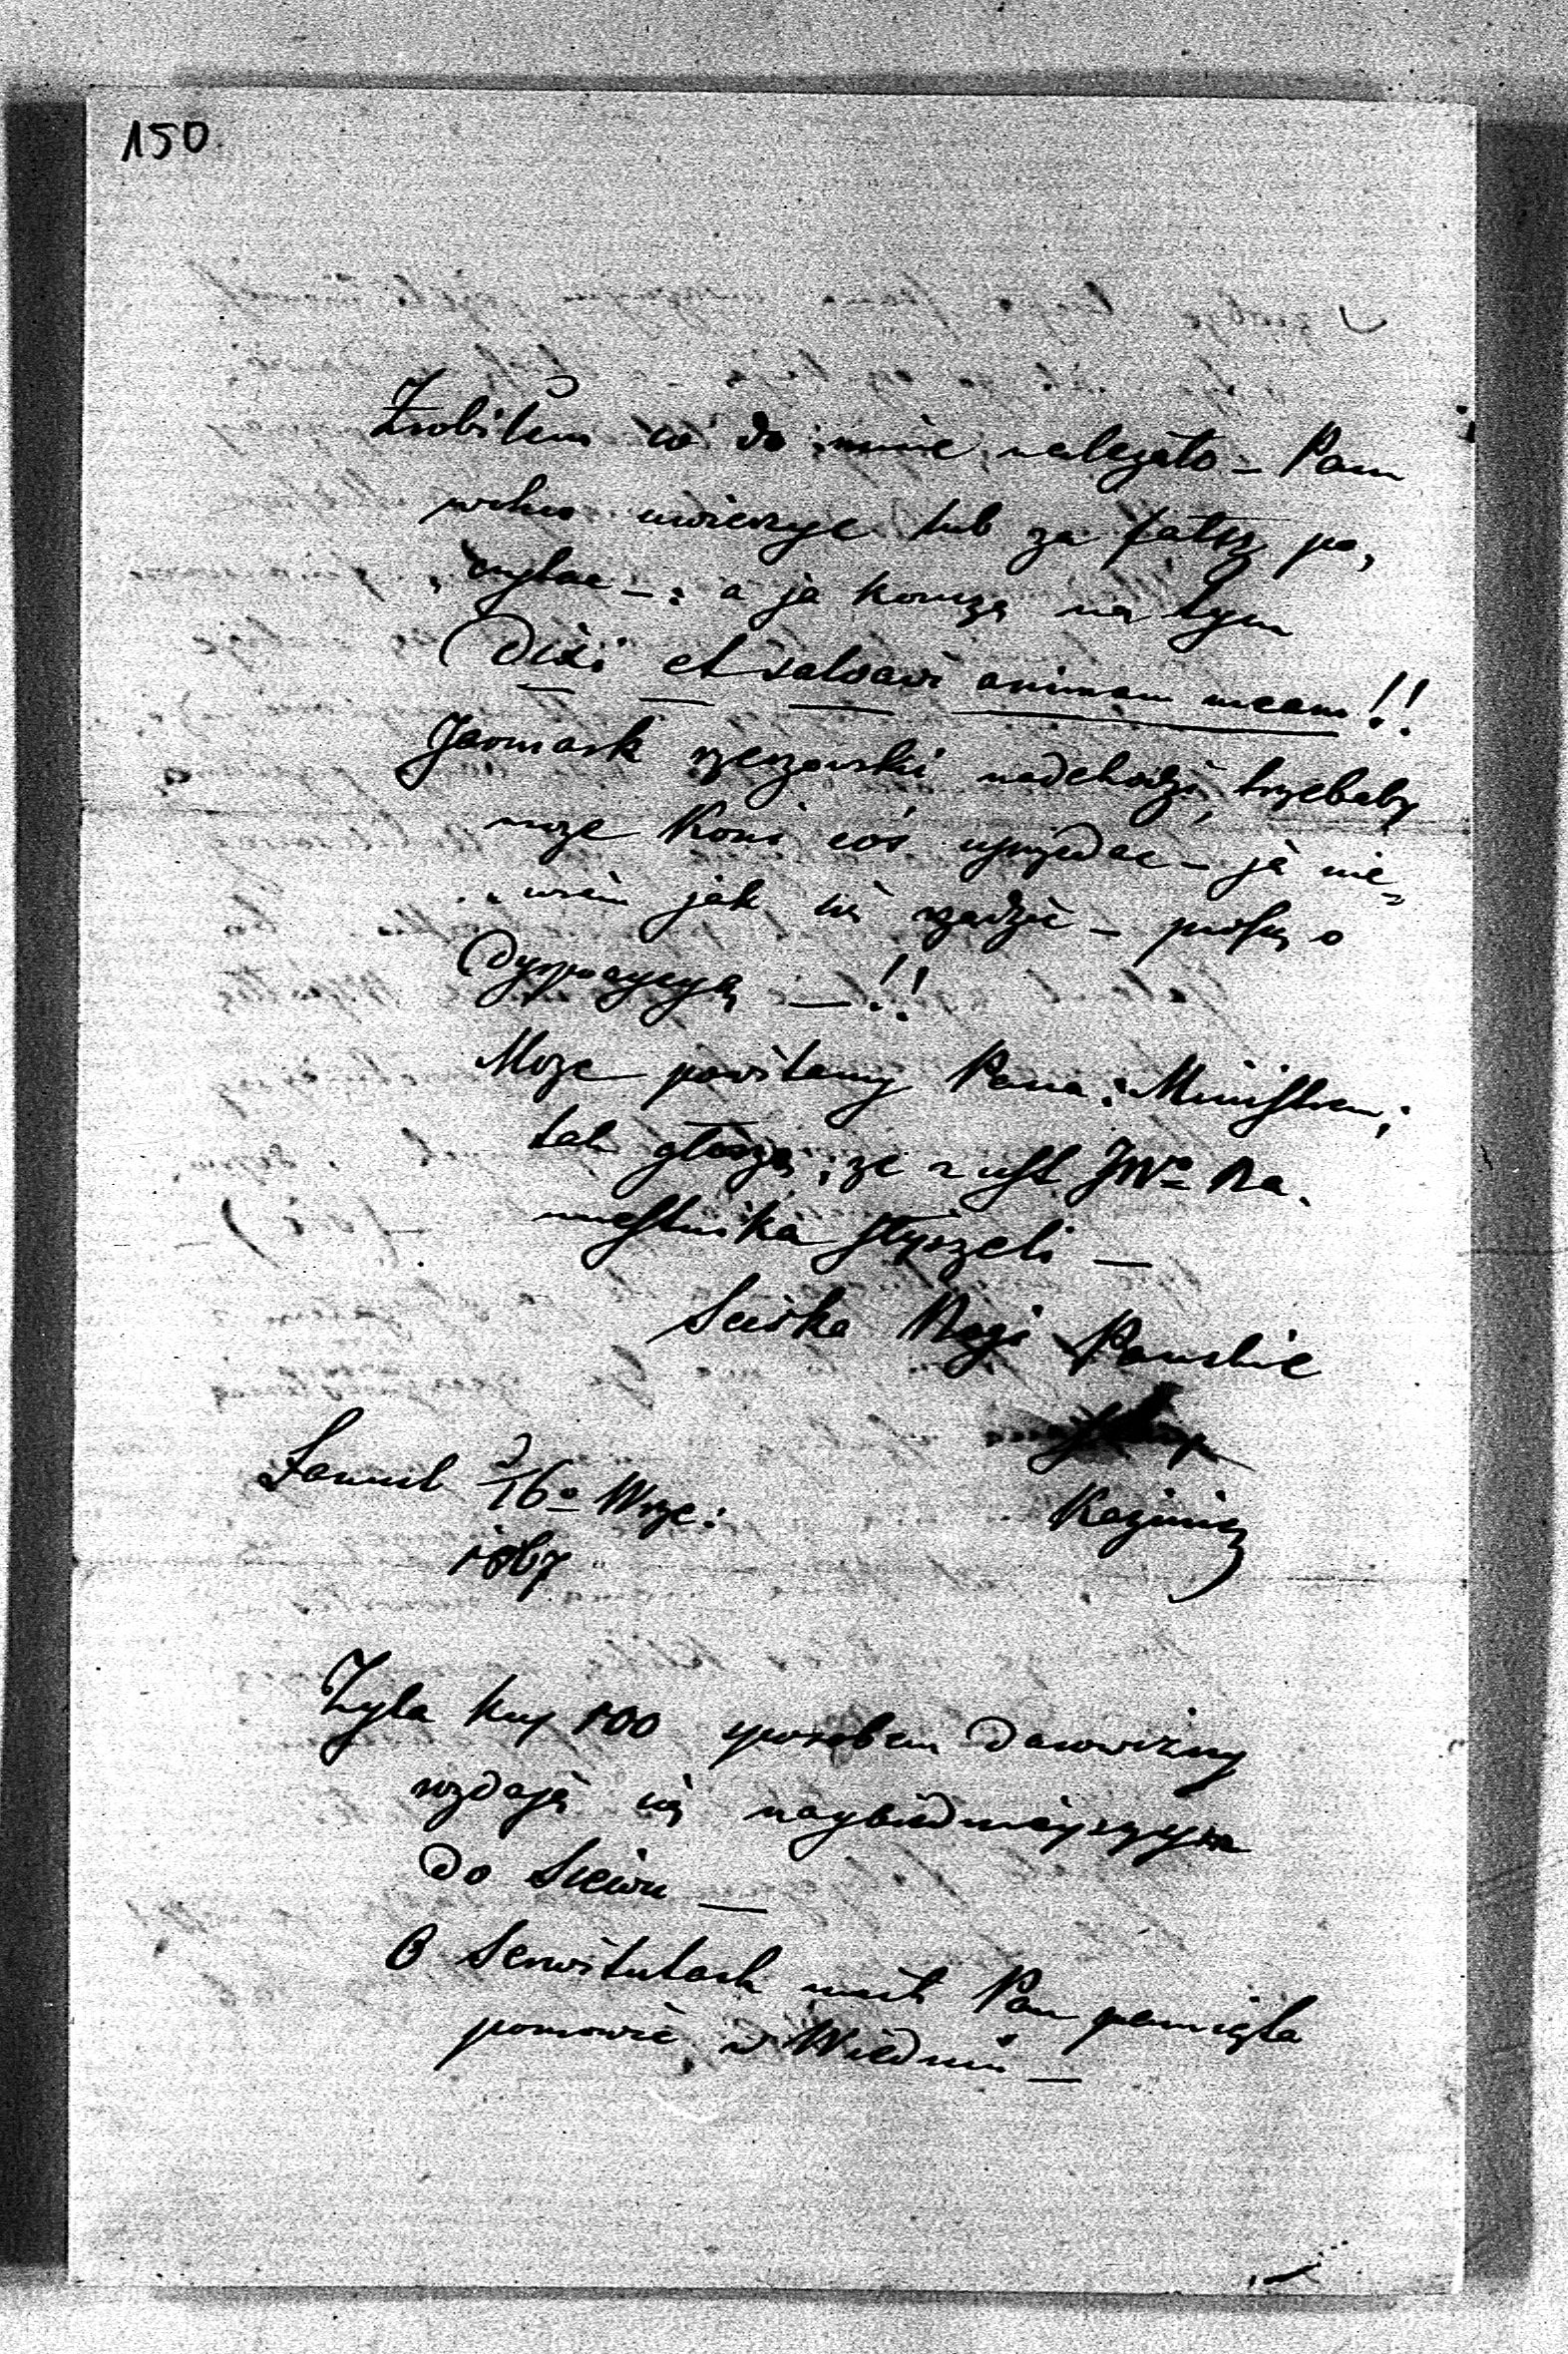 150
Zrobiłem co do mnie należało – Pan
wolno uwierzyc lub za fałsz po„
„czytac –: a ja kończę na tym
Dixi et salvavi animam meam!!
Jarmark rzeszowski nadchodzi, trzebaby
moze Koni coś wyprzedac – ja nie„
„wiem jak się rządzić – proszę o
Dyspozycyą – !!
Może powitamy Pana: Ministrem;
tak głoszą, ze z ust JWo Na„
miestnika słyszeli –
Sciska Nogi Pańskie
Kazimirz
d 16o Wrze:
1867
Zyta kup 100 sposobem darowizny
rozdają się naybiedniejszym
do Siewu –
O Serwitutach niech Pan pamięta
pomowić w Wiedniu –